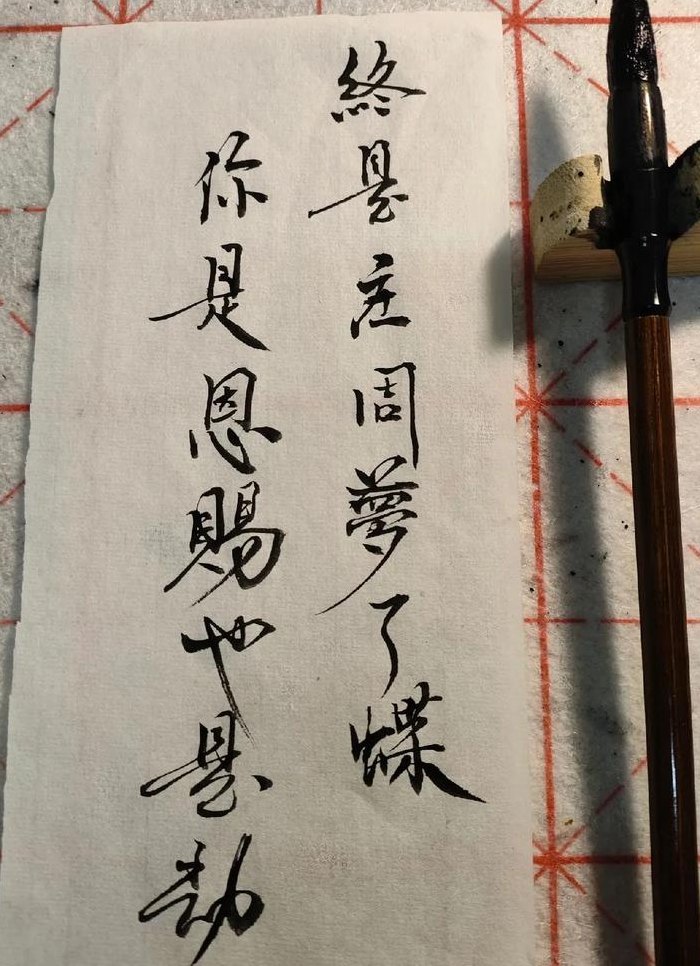 終是庄周夢了蝶
你是恩賜也是劫